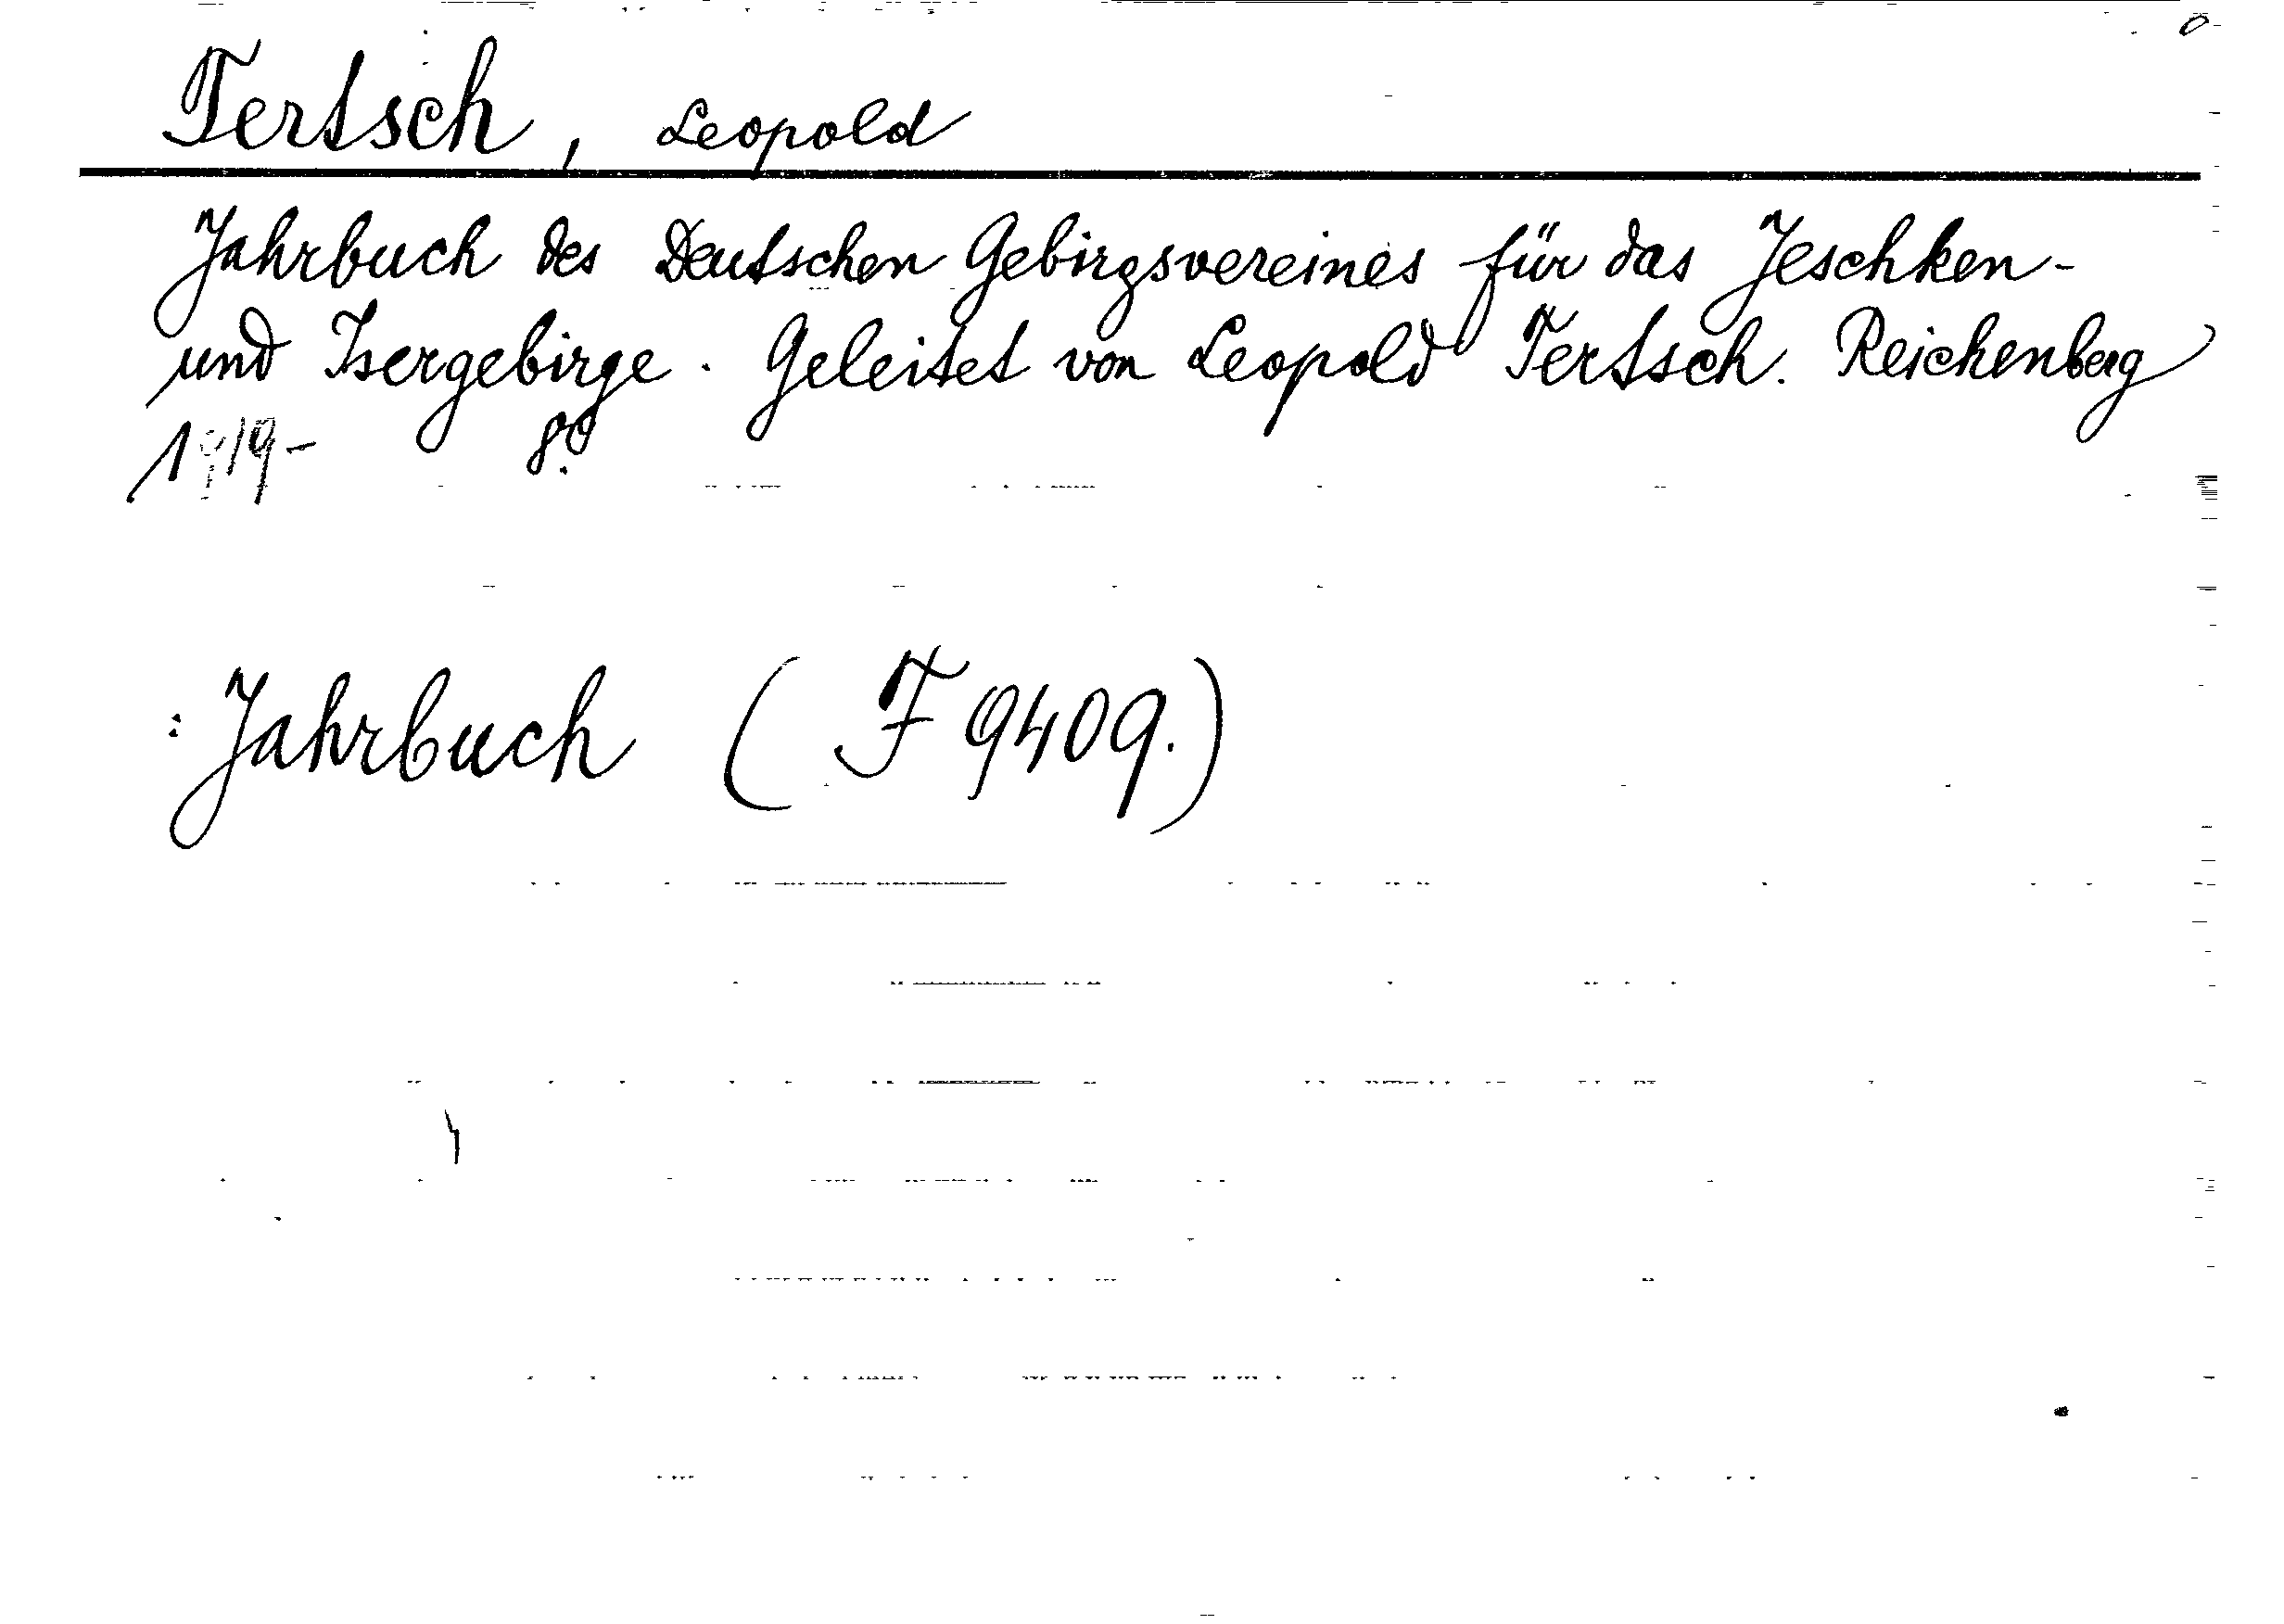 Tertsch, Leopold
Jahrbuch des Deutschen Gebirgsvereines für das Jeschken-
und Isergebirge. Geleitet von Leopold Tertsch. Reichenberg
1919- 8°.
: Jahrbuch (F 9409.)